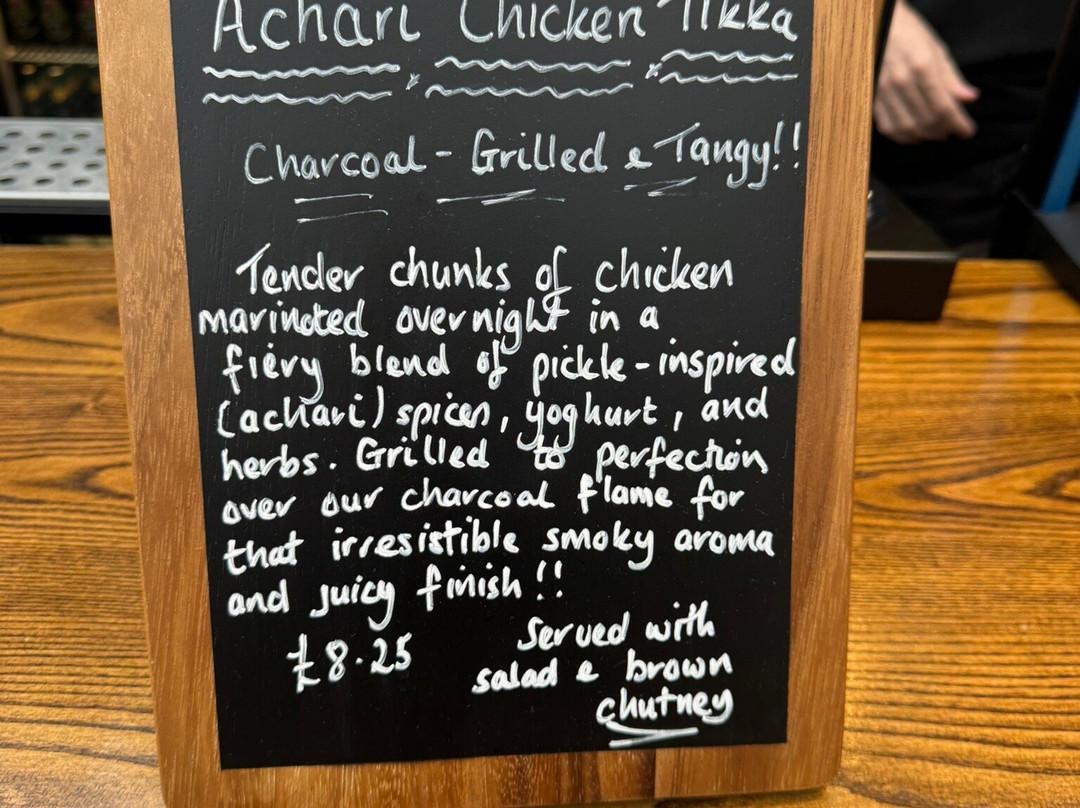 Achari Chicken Tikka
Charcoal - Grilled & Tangy!!
Tender chunks of chicken
marinated overnight in a
fiery blend of pickle-inspired
(achari) spices, yoghurt, and
herbs. Grilled to perfection
over our charcoal flame for
that irresistible smoky aroma
and juicy finish!!
£8.25
Served with
salad & brown
chutney